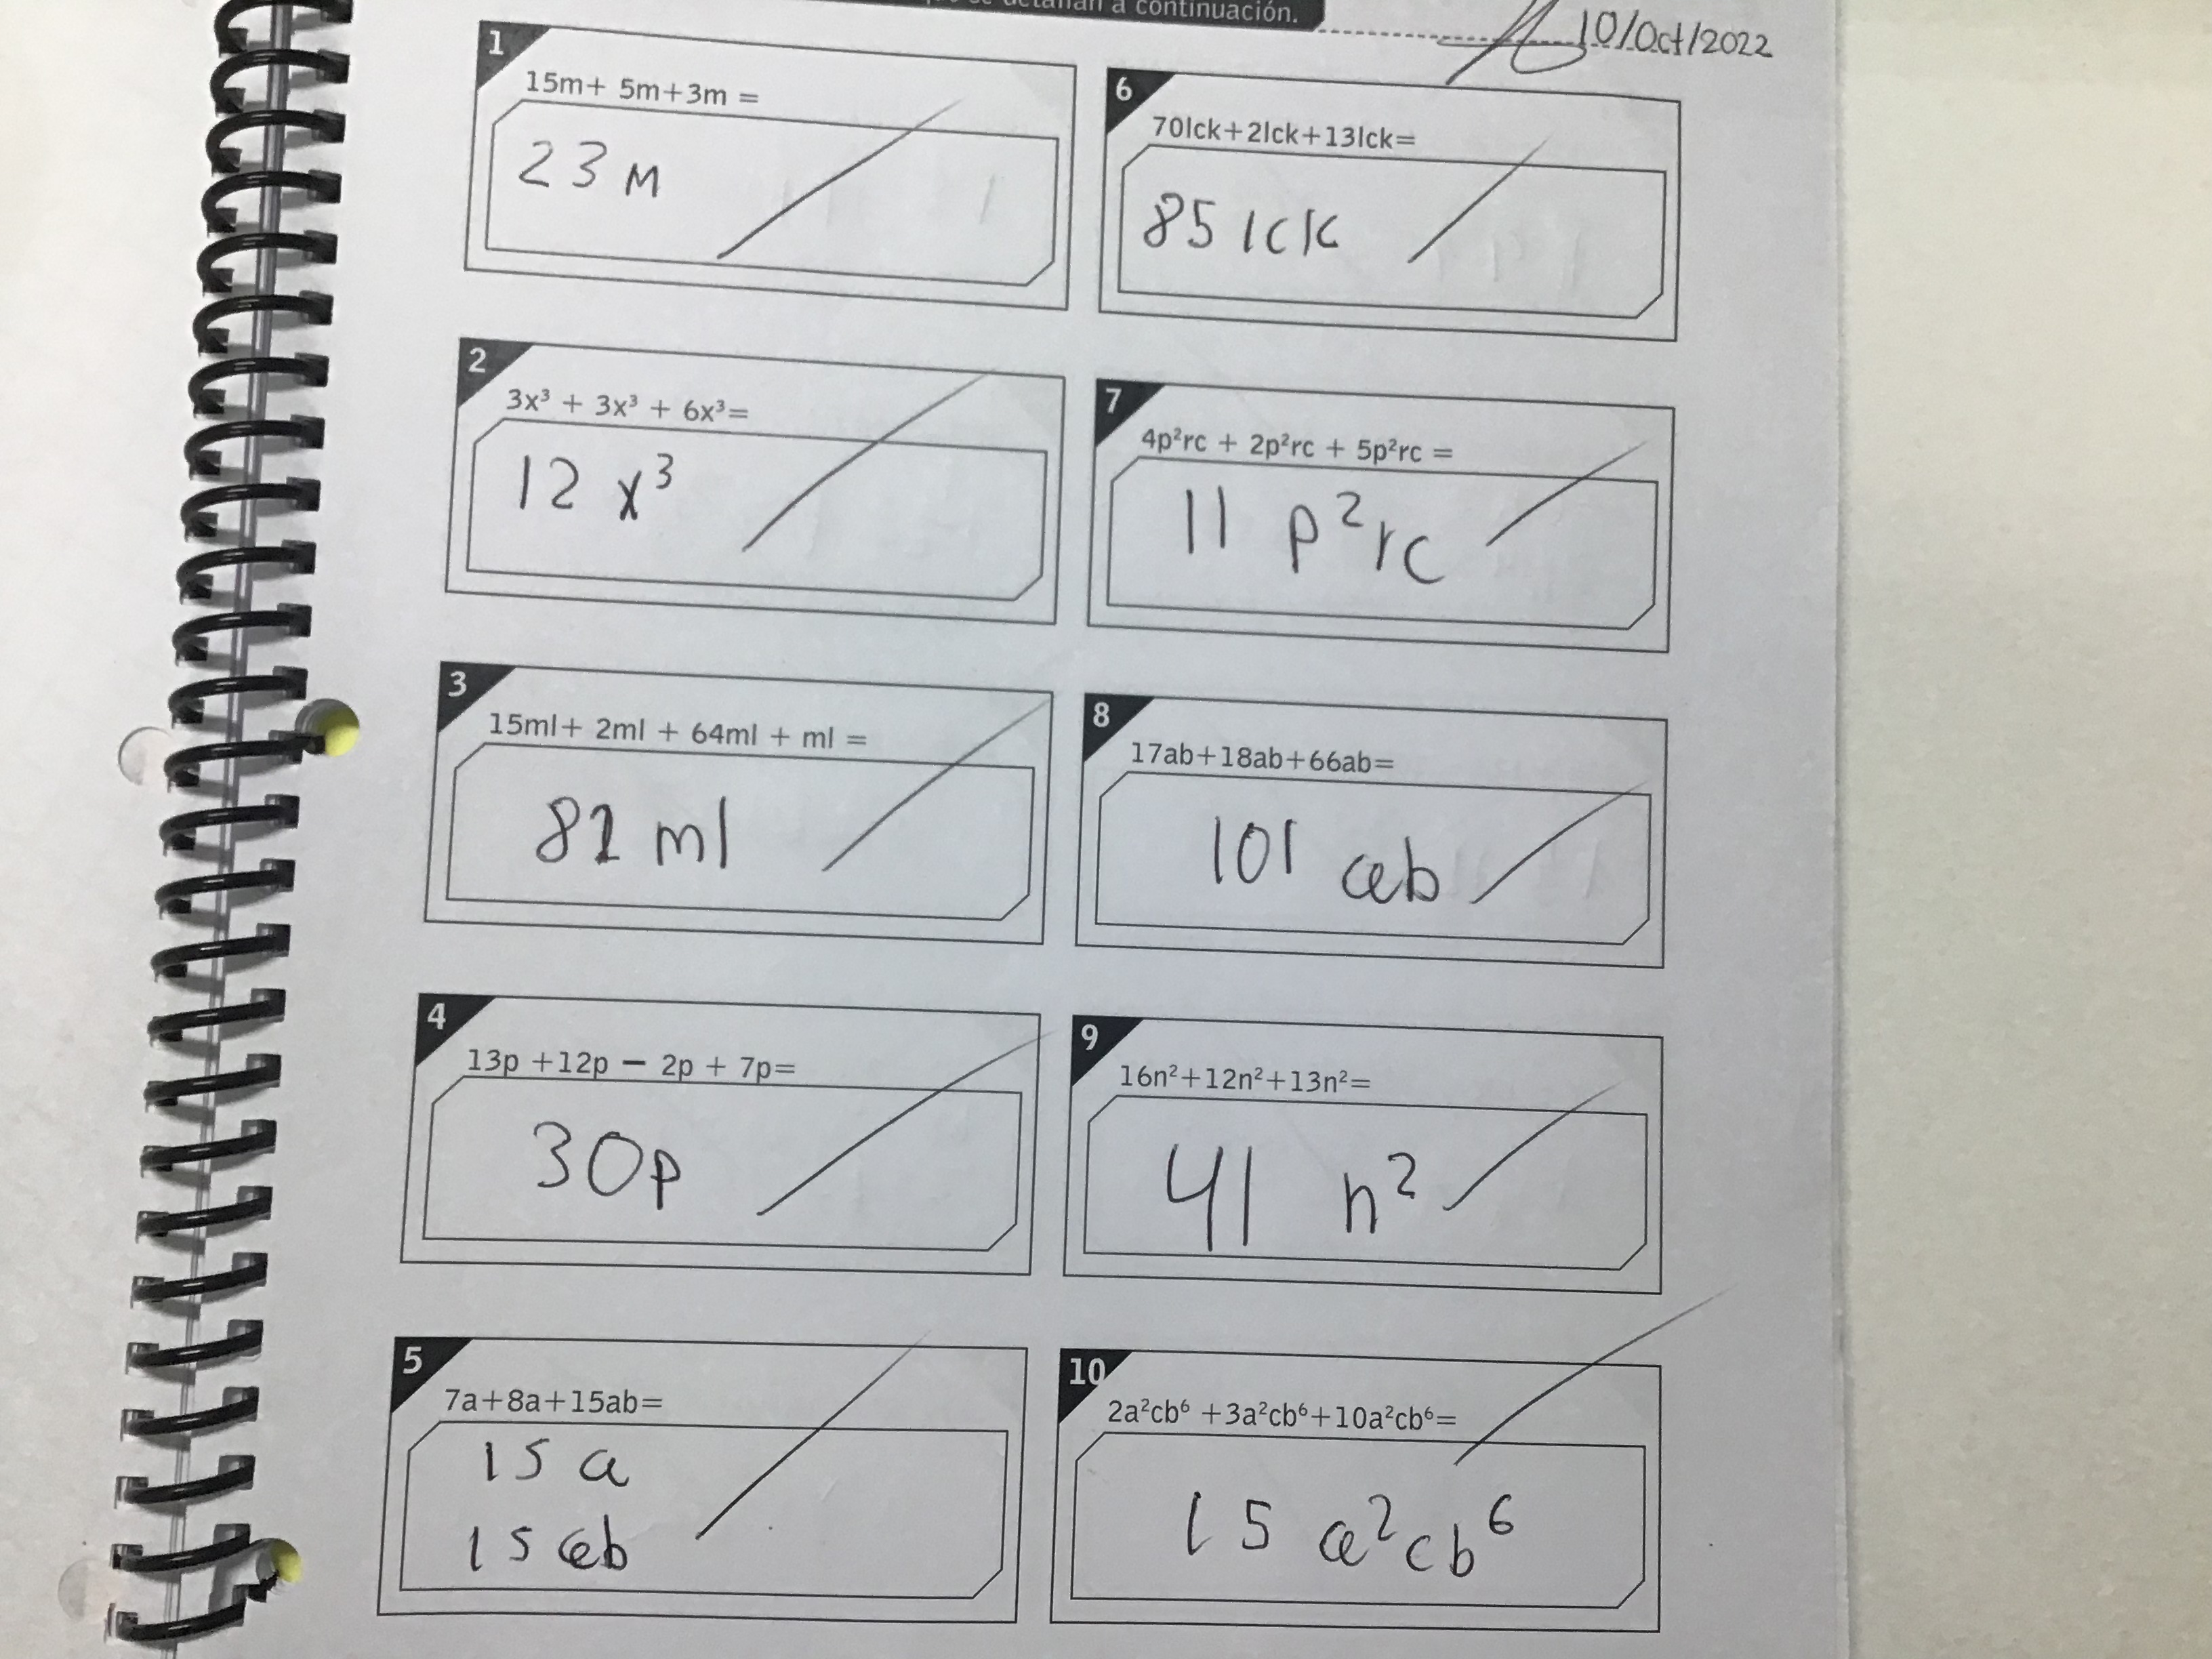 a continuación.
10/Oct/2022
1
15m+ 5m+3m =
23 m
2
3x³ + 3x³ + 6x³=
12 x³
3
15ml+ 2ml + 64ml + ml =
ml
4
13p +12p − 2p + 7p=
30p
5
7a+8a+15ab=
15 a
15 ab
6
70lck+2lck+13lck=
85 lck
7
4p²rc + 2p²rc + 5p²rc =
11 p²rc
8
17ab+18ab+66ab=
101 ab
9
16n²+12n²+13n²=
41 n²
10
2a²cb⁶ +3a²cb⁶+10a²cb⁶=
15 a²cb⁶